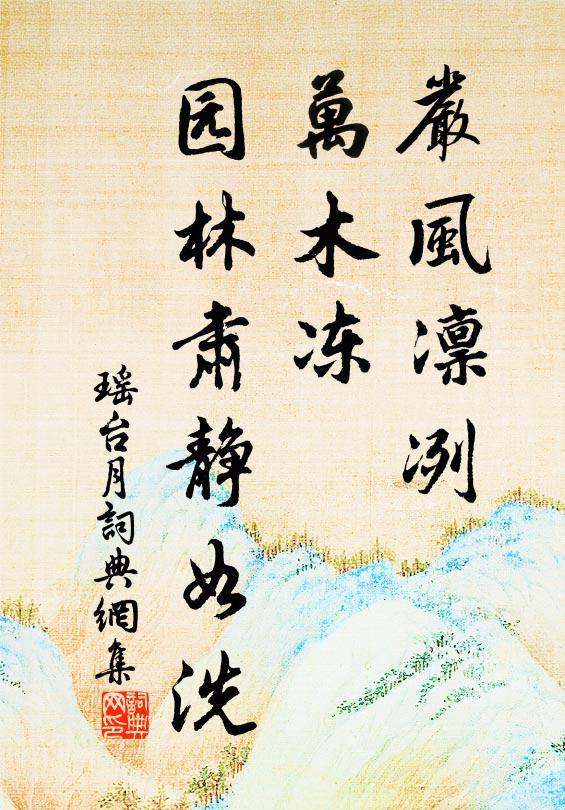 嚴風凛冽
萬木冻
园林肃静如洗
瑶台月詞典網集
詞典
网印